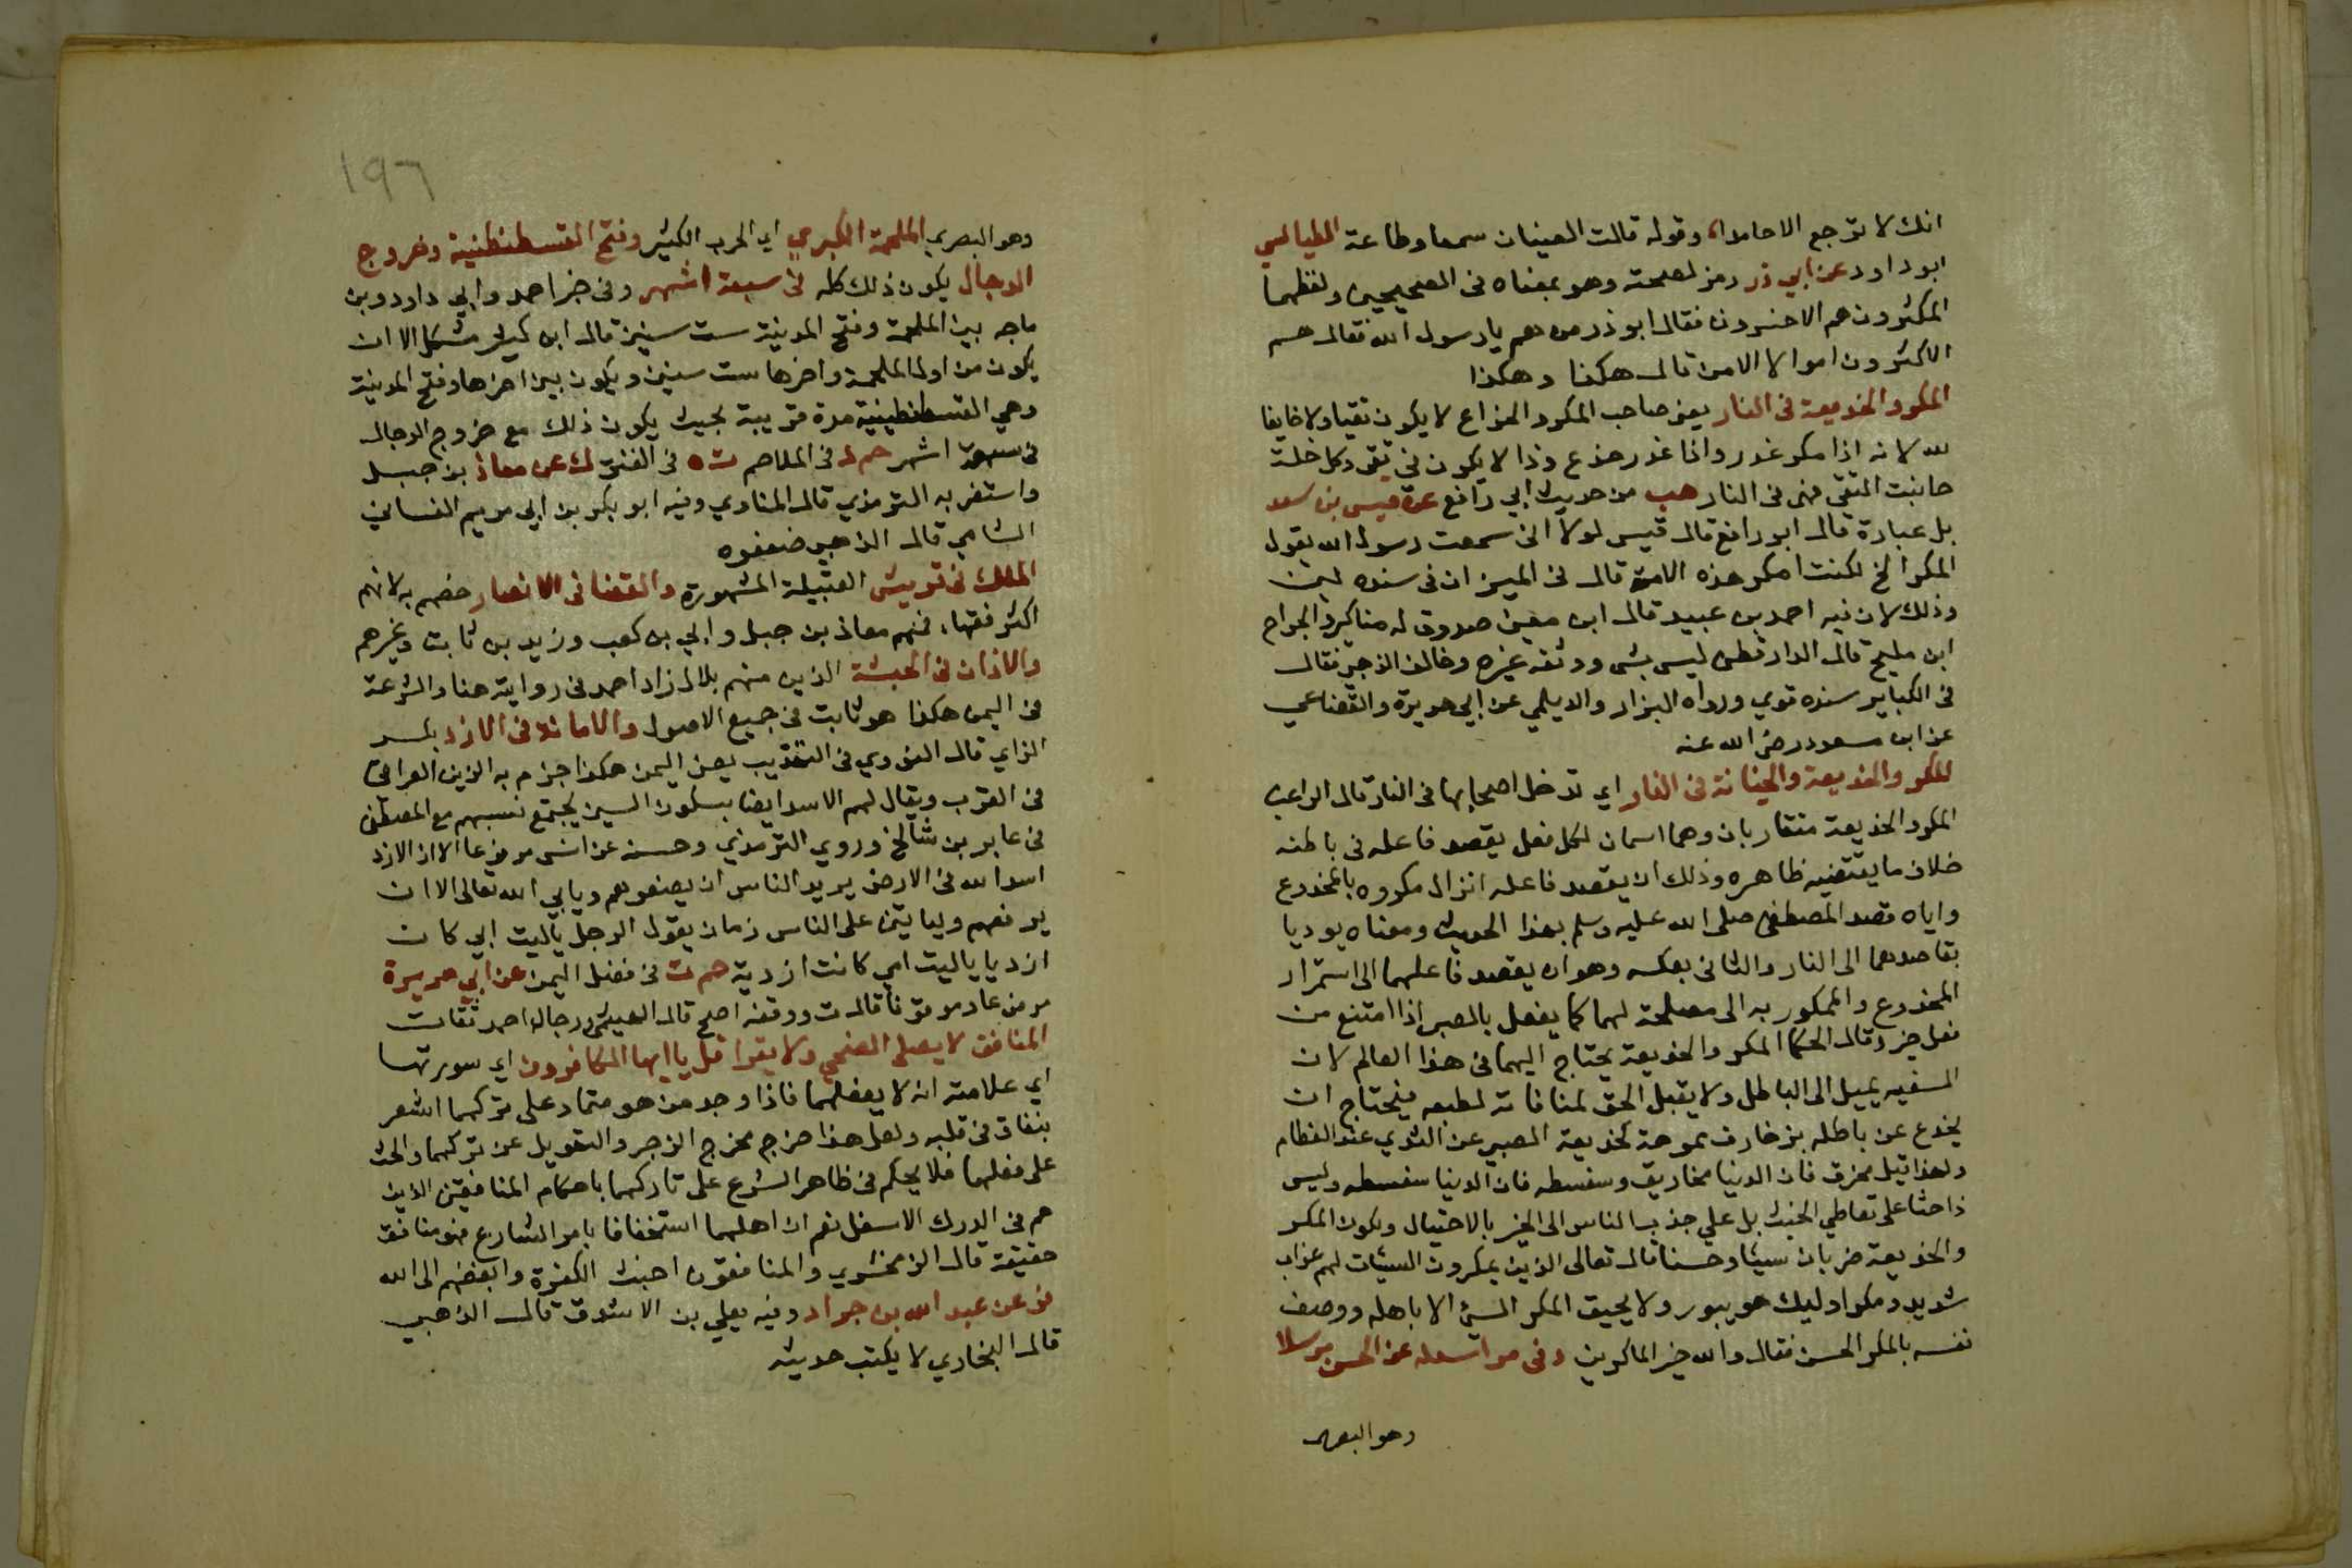 انك لا ترجع الا حامدا، وقوله قالت العينان سمعا وطاعة الطيالسي
ابو داود عن ابي ذر رمز لصحته وهو بمعناه في الصحيحين ولفظهما
المكثرون هم الاخسرون فقال ابو ذر من هم يا رسول الله فقال هم
الاكثرون اموالا الا من قال هكذا وهكذا
المكر والخديعة في النار يعني صاحب المكر والخداع لا يكون تقيا ولا خايفا
لله لانه اذا مكر غدر واذا غدر خدع وذا لا يكون في تقي وكل خلة
جانبت التقي فهي في النار هب من حديث ابي رافع عن قيس بن سعد
بل عبارة قال ابو رافع قال قيس لولا اني سمعت رسول الله يقول
المكر الخ لكنت امكر هذه الامة قال في الميزان في سنده لين
وذلك لان فيه احمد بن عبيد قال ابن معين صدوق له مناكير والجراح
ابن مليح قال الدارقطني ليس بشي ووثقه غيره وخالف الذهبي فقال
في الكباير سنده قوي ورواه البزار والديلمي عن ابي هريرة والقضاعي
عن ابن مسعود رضي الله عنه
المكر والخديعة والخيانة في النار اي تدخل اصحابها في النار قال الراغب
المكر والخديعة متقاربان وهما اسمان لكل فعل يقصد فاعله في باطنه
خلاف ما يقتضيه ظاهره وذلك ان يقصد فاعله انزال مكروه بالمخدوع
واياه قصد المصطفى صلى الله عليه وسلم بهذا الحديث ومعناه يوديا
بقاصدهما الى النار والثاني بعكسه وهو ان يقصد فاعلهما الى استمرار
المخدوع والممكور به الى مصلحة لهما كما يفعل بالصبي اذا امتنع من
فعل خير وقال الحكما المكر والخديعة يحتاج اليهما في هذا العالم لان
السفيه يميل الى الباطل ولا يقبل الحق لمنافاته لطبعه فيحتاج ان
يخدع عن باطله بزخارف مموهة كخديعة الصبي عن الثدي عند الفطام
ولهذا قيل مخرق فان الدنيا مخاريق وسفسطه فان الدنيا سفسطه وليس
ذا حثا على تعاطي الخبث بل علي جذب الناس الى الخير بالاحتيال ولكون المكر
والخديعة ضربان سيئا وحسنا قال تعالى الذين يمكرون السيئات لهم عذاب
شديد ومكر اوليك هو يبور ولا يحيق المكر السئ الا باهله ووصف
نفسه بالمكر الحسن فقال والله خير الماكرين د في مراسله عن الحسن مرسلا
وهو البصري
١٩٦
وهو البصري الملحمة الكبرى اي الحرب الكثير وفتح القسطنطنية وخروج
الدجال يكون ذلك كله في سبعة اشهر وفي خبر احمد وابي داود وبن
ماجه بين الملحمة وفتح المدينة ست سنين قال ابن كثير مشكل الا ان
يكون من اول الملحمة واخرها ست سنين ويكون بين اخرها وفتح المدينة
وهي القسطنطينية مدة قريبة بحيث يكون ذلك مع خروج الدجال
في سبعة اشهر حم د في الملاحم ت ه في الفتن ك عن معاذ بن جبل
واستغربه الترمذي قال المناوي وفيه ابو بكر بن ابي مريم الغساني
الشامي قال الذهبي ضعفوه
الملك في قريش القبيلة المشهورة والقضا في الانصار خصهم به لانهم
اكثر فقها، فمنهم معاذ بن جبل وابي بن كعب وزيد بن ثابت وغيرهم
والاذان في الحبشة الذين منهم بلال زاد احمد في روايته هنا والشرعة
في اليمن هكذا هو ثابت في جميع الاصول والامانة في الازد بكسر
الزاي قال النووي في التقريب يعني اليمن هكذا جزم به الزين العراقي
في القرب ويقال لهم الاسد ايضا بسكون السين يجتمع نسبهم مع المصطفى
في عابر بن شالخ وروي الترمذي وحسنه عن انس مرفوعا الازد الازد
اسد الله في الارض يريد الناس ان يضعوهم ويابي الله تعالى الا ان
يرفعهم ولياتين على الناس زمان يقول الرجل يا ليت ابي كان
ازديا يا ليت امي كانت ازدية حم ت في فضل اليمن عن ابي هريرة
مرفوعا وموقوفا قال ت ووقفه اصح قال الهيثمي رجال احمد ثقات
المنافق لا يصلي الضحى ولا يقرا قل يا ايها الكافرون اي سورتها
اي علامته انه لا يفعلهما فاذا وجد من هو متماد على تركهما اشعر
بنفاق في قلبه ولعل هذا خرج مخرج الزجر والتهويل عن تركهما والحث
على فعلهما فلا يحكم في ظاهر الشرع على تاركهما باحكام المنافقين الذين
هم في الدرك الاسفل نعم ان اهلهما استخفافا بامر الشارع فهو منافق
حقيقة قال الزمخشري والمنافقون اخبث الكفرة وابغضهم الى الله
فر عن عبد الله بن جراد وفيه يعلي بن الاشدق قال الذهبي
قال البخاري لا يكتب حديثه